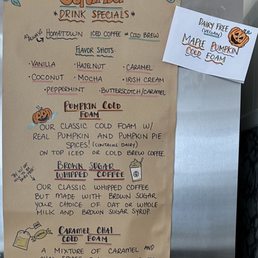 DRINK SPECIALS
HOMETOWN ICED COFFEE or COLD BREW
FLAVOR SHOTS
• VANILLA • HAZELNUT • CARAMEL
• COCONUT • MOCHA • IRISH CREAM
• PEPPERMINT • BUTTERSCOTCH/CARAMEL
PUMPKIN COLD
FOAM
OUR CLASSIC COLD FOAM W/
REAL PUMPKIN AND PUMPKIN PIE
SPICES! (CONTAINS DAIRY)
ON TOP ICED OR COLD BREW COFFEE
BROWN SUGAR
WHIPPED COFFEE
OUR CLASSIC WHIPPED COFFEE
BUT MADE WITH BROWN SUGAR
YOUR CHOICE OF OAT OR WHOLE
MILK AND BROWN SUGAR SYRUP
CARAMEL CHAI
COLD FOAM
A MIXTURE OF CARAMEL AND
DAIRY FREE
(VEGAN)
MAPLE PUMPKIN
COLD FOAM